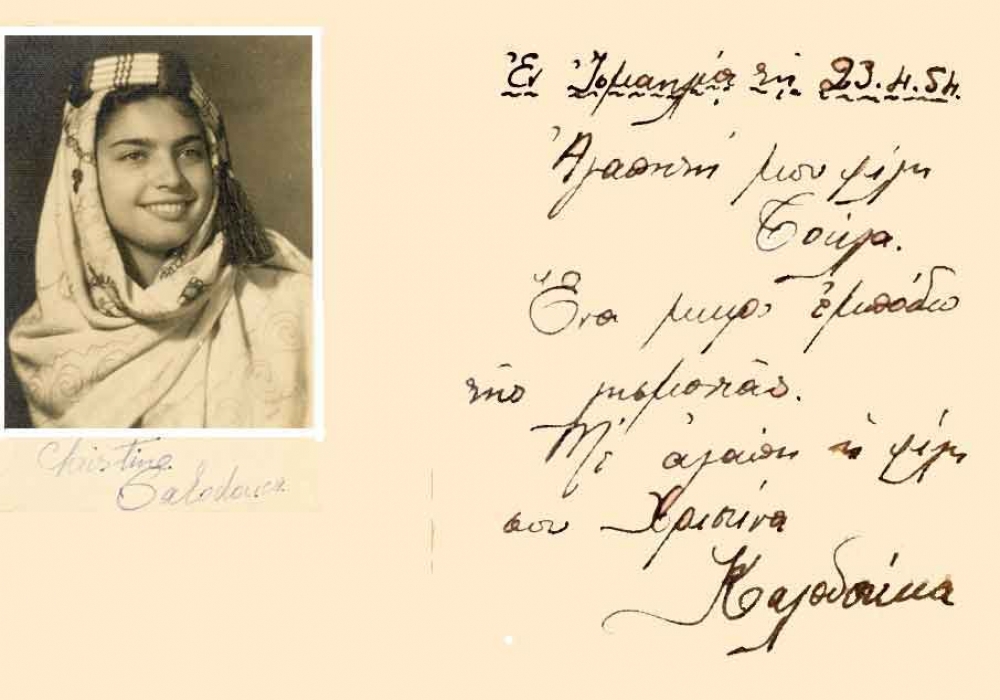 Christine
Calodouca
Ἐν Ἰσμαηλίᾳ τῇ 23.4.54.
Ἀγαπητή μου φίλη
Τούλα.
Ἕνα μικρό ἐμπόδιο
τῆς λησμονιᾶς.
Μέ ἀγάπη ἡ φίλη
σου Χριστίνα
Καλοδούκα